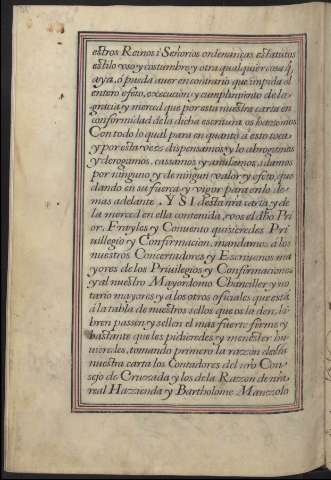 estros Reinos i Señorios ordenanças estatutos
estilo vso y costumbre y otra qualquier cosa q̃
aya, ó pueda auer en contrario que impida el
entero efeto, execucion y cumplimiento de la
gracia y merced que por esta nuestra carta en
conformidad de la dicha escritura os hazemos
Con todo lo qual para en quanto á esto toca
y por esta vez dispensamos y lo abrogamos
y derogamos, cassamos y anulamos, i damos
por ninguno y de ningun valor y efeto, que
dando en su fuerça y vigor para en lo de-
mas adelante . Y SI desta nr̃a carta y de
la merced en ella contenida, vos el dh̃o Pri
or, Frayles y Conuento quisieredes Pri
uillegio y Confirmacion, mandamos á los
nuestros Concertadores y Escriuanos ma
yores de los Priuilegios y Confirmaciones
y al nuestro Mayordomo Chanciller y no
tario mayores y a los otros oficiales que está
á la tabla de nuestros sellos que os la den, li
bren passen y sellen el mas fuerte firme y
bastante que les pidieredes y menester hu
uieredes, tomando primero la razon desta
nuestra carta los Contadores del nr̃o Con-
sejo de Cruzada y los de la Razon de nr̃a
real Hazzienda y Bartholome Manzolo